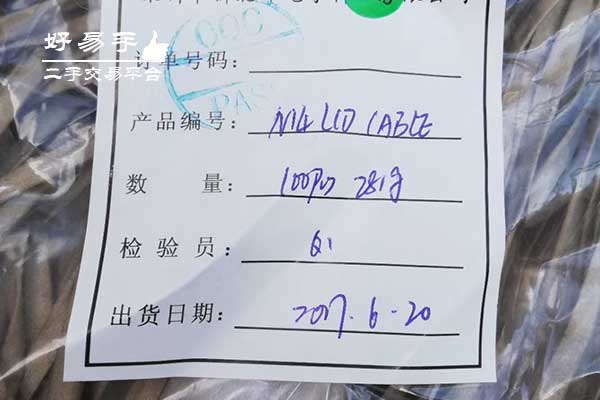 好易手
二手交易平台
QC
PAS
订单号码:
产品编号: N14 LCD CABLE
数 量: 100PCS 281g
检 验 员: Q1
出货日期: 2017.6-20